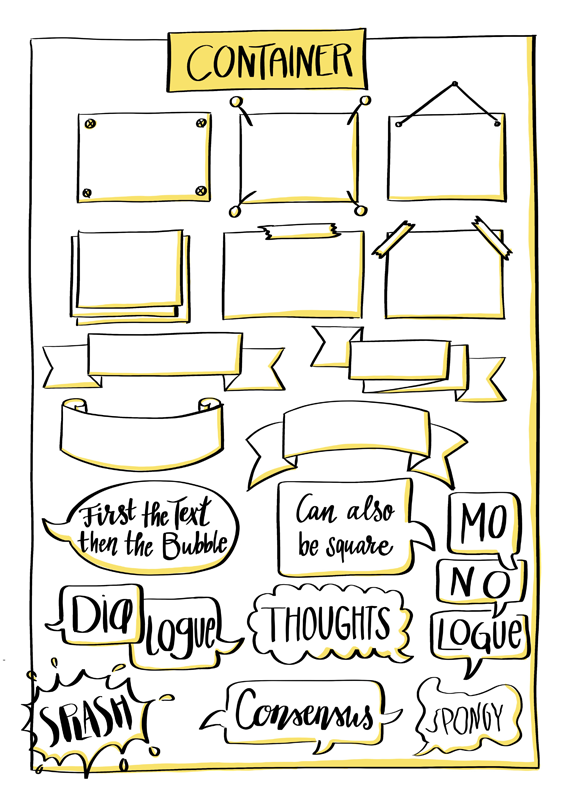 CONTAINER
First the Text
then the Bubble
Can also
be square
MO
NO
LOGUE
Dia
logue
THOUGHTS
SPLASH
Consensus
SPONGY